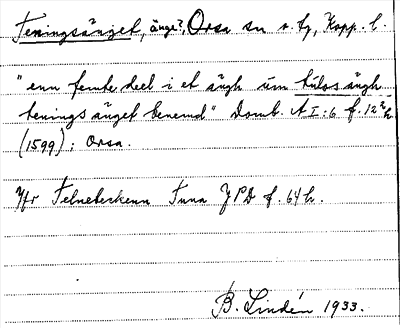 Teningsänget, änge?, Orsa sn o. tg, Kopp. l.
"enn femte deel i et ängh um hulos ängh
tenings änget benemd" Domb. A I:6 f. 122 h
(1599); Orsa.
Jfr Felnebeckenn Tuna JPD f. 64 h.
B. Lindén 1933.